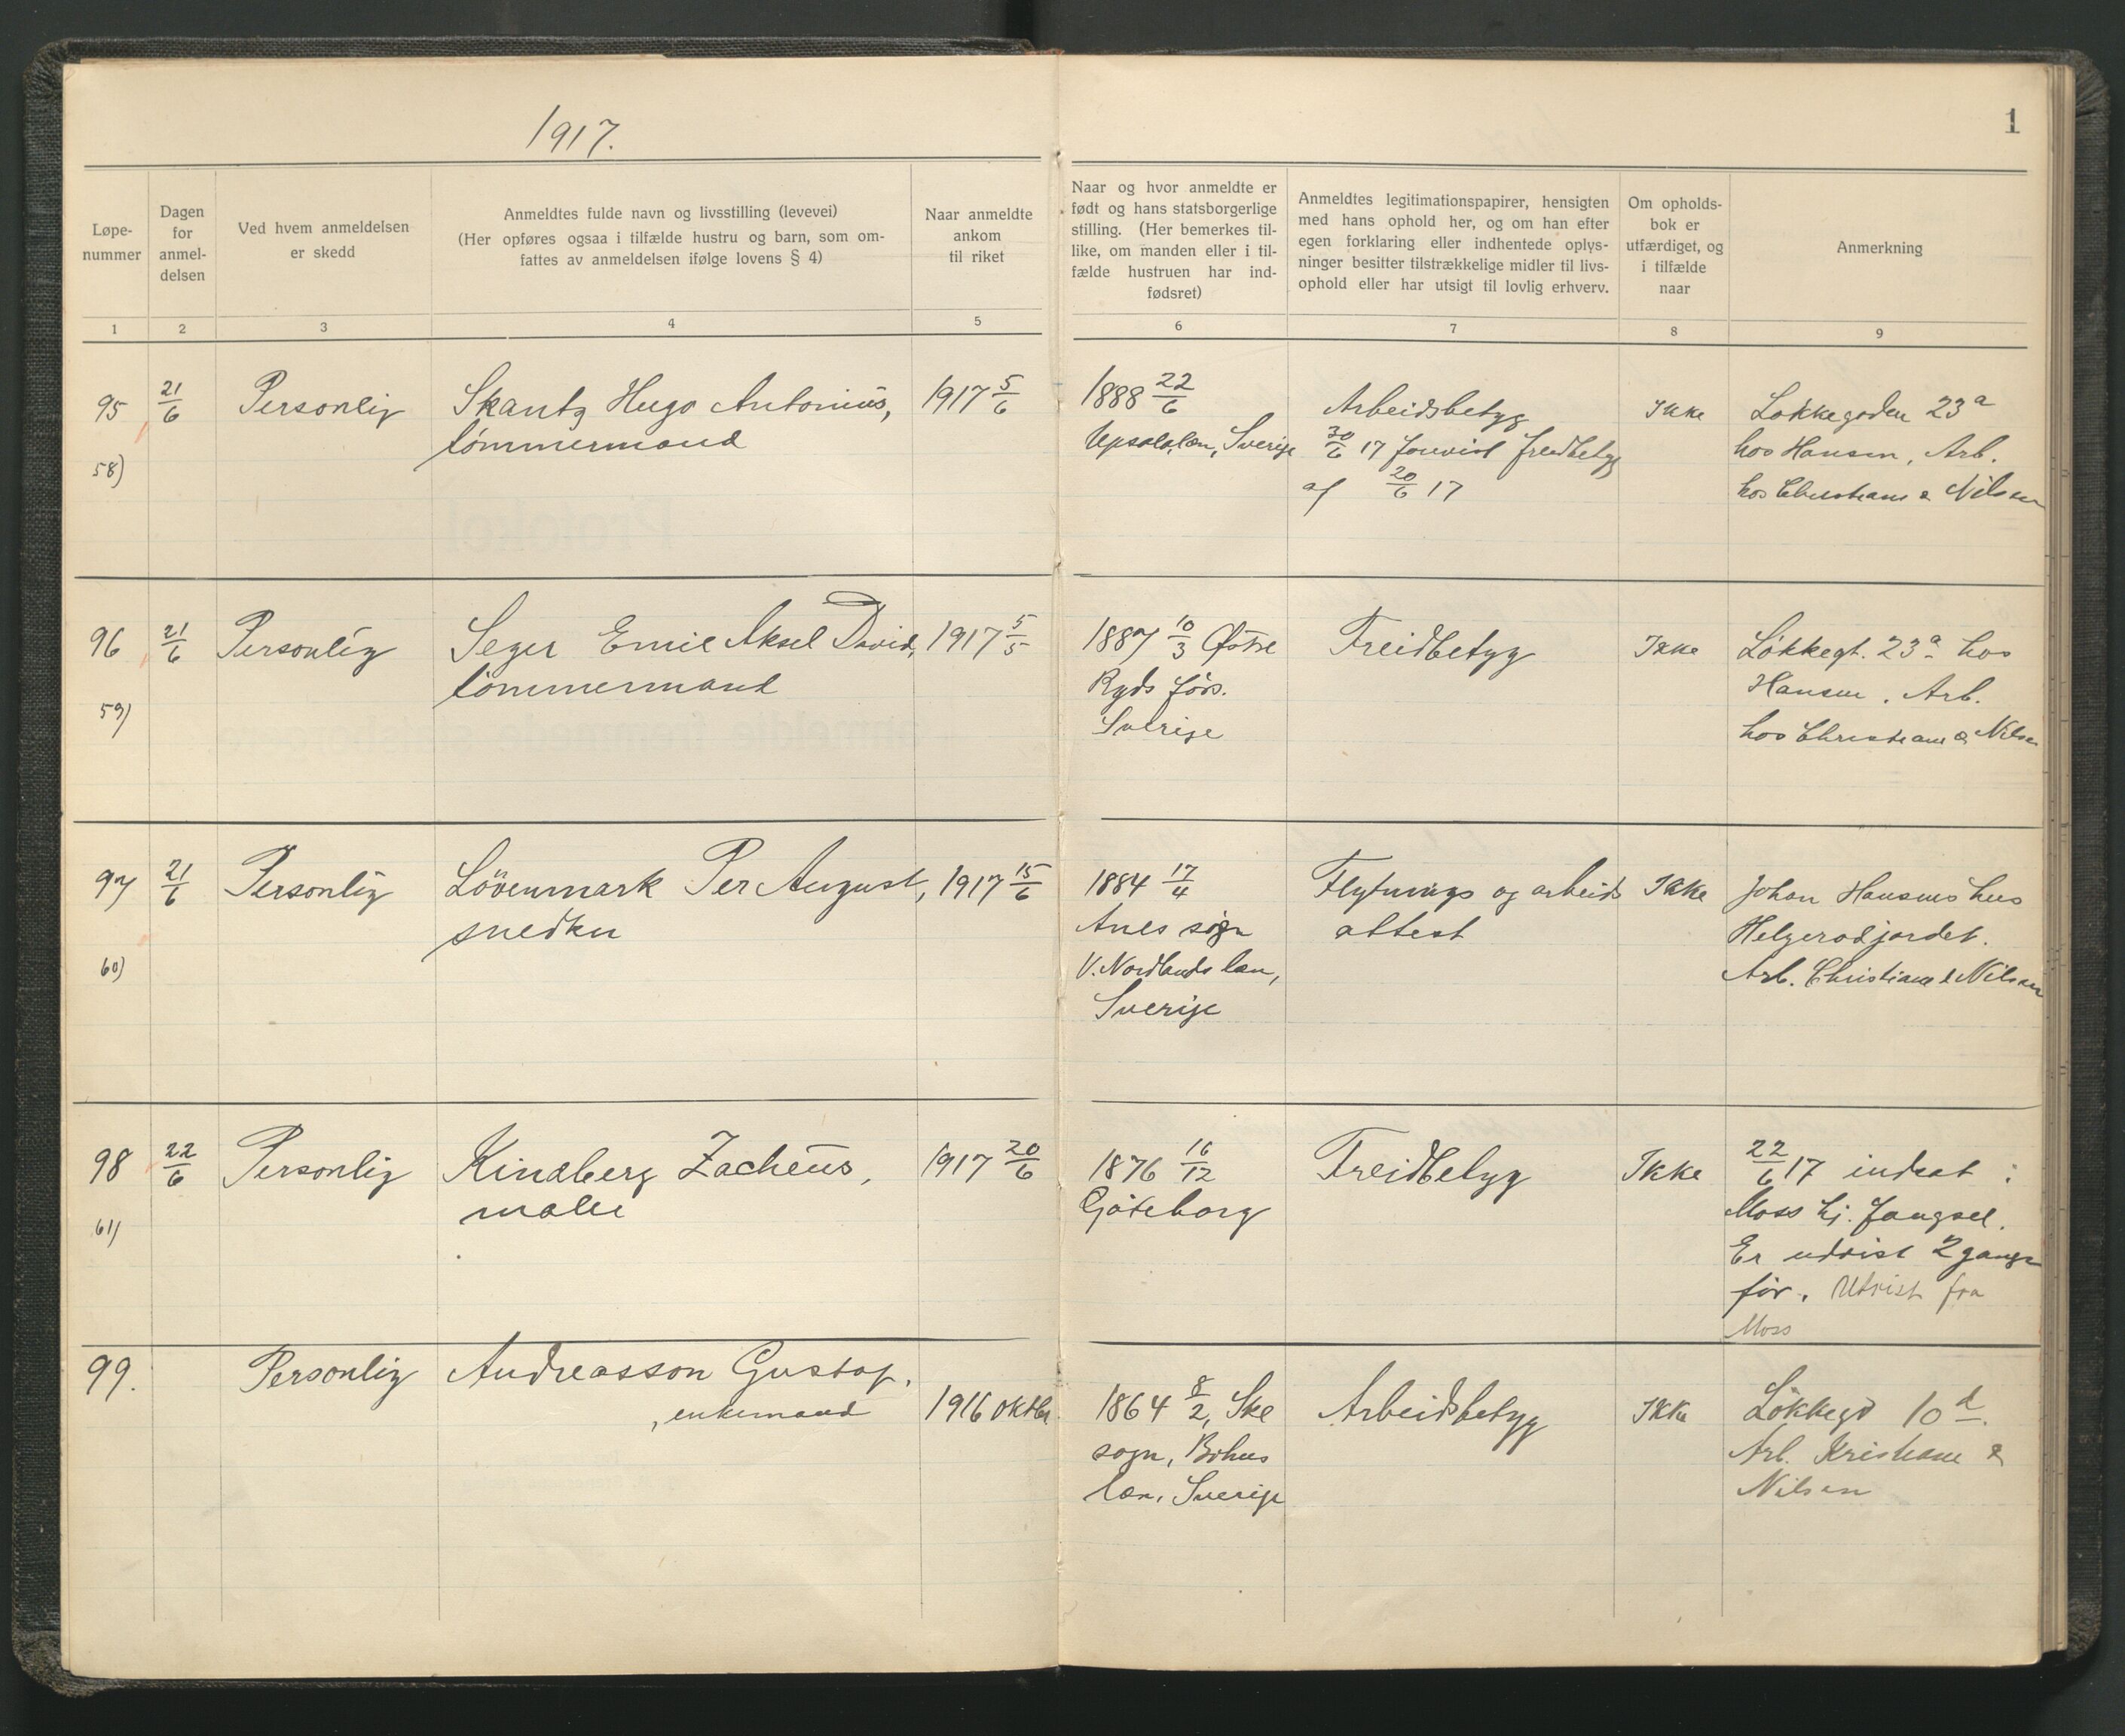 1917.
1
Løpe-
nummer
Dagen
for
anmel-
delsen
Ved hvem anmeldelsen
er skedd
Anmeldtes fulde navn og livsstilling (levevei)
(Her opføres ogsaa i tilfælde hustru og barn, som om-
fattes av anmeldelsen ifølge lovens § 4)
Naar anmeldte
ankom
til riket
Naar og hvor anmeldte er
født og hans statsborgerlige
stilling. (Her bemerkes til-
like, om manden eller i til-
fælde hustruen har ind-
fødsret)
Anmeldtes legitimationspapirer, hensigten
med hans ophold her, og om han efter
egen forklaring eller indhentede oplys-
ninger besitter tilstrækkelige midler til livs-
ophold eller har utsigt til lovlig erhverv.
Om opholds-
bok er
utfærdiget, og
i tilfælde
naar
Anmerkning
1 2 3 4 5 6 7 8 9
95
58)
21/6
Personlig
Skantz Hugo Antonius,
tømmermand
1917 5/6
1888 22/6
Upsala læn, Sverige
Arbeidsbetyg
30/6 17 forevist freidbetyg
af 20/6 17
Ikke
Løkkegaden 23a
hos Hansen, Arb.
hos Christians & Nilsen
96
59)
21/6
Personlig
Seger Emil Aksel David,
tømmermand
1917 5/5
1887 10/3 Østre
Ryds førs.
Sverige
Freidbetyg
Ikke
Løkkegt. 23a hos
Hansen. Arb.
hos Christians & Nilsen
97
60)
21/6
Personlig
Lövenmark Per August,
snedker
1917 15/6
1884 17/4
sogn
V. Nordlands læn,
Sverige
Flytnings og arbeids
attest
Ikke
Johan Hansens hus
Helgerødjordet.
Arb. Christians & Nilsen
98
61)
22/6
Personlig
Kindberg Zacheus,
maler
1917 20/6
1876 16/12
Gøteborg
Freidbetyg
Ikke
22/6 17 indsat i
Moss hj. fængsel.
Er udvist 2 ganger
før. Utvist fra
Moss
99.
Personlig
Andreasson Gustaf,
, enkemand
1916 oktbr
1864 8/2, Ske
sogn, Bohus
læn, Sverige
Arbeidsbetyg
Ikke
Løkkegd 10d.
Arb. Kristians &
Nilsen